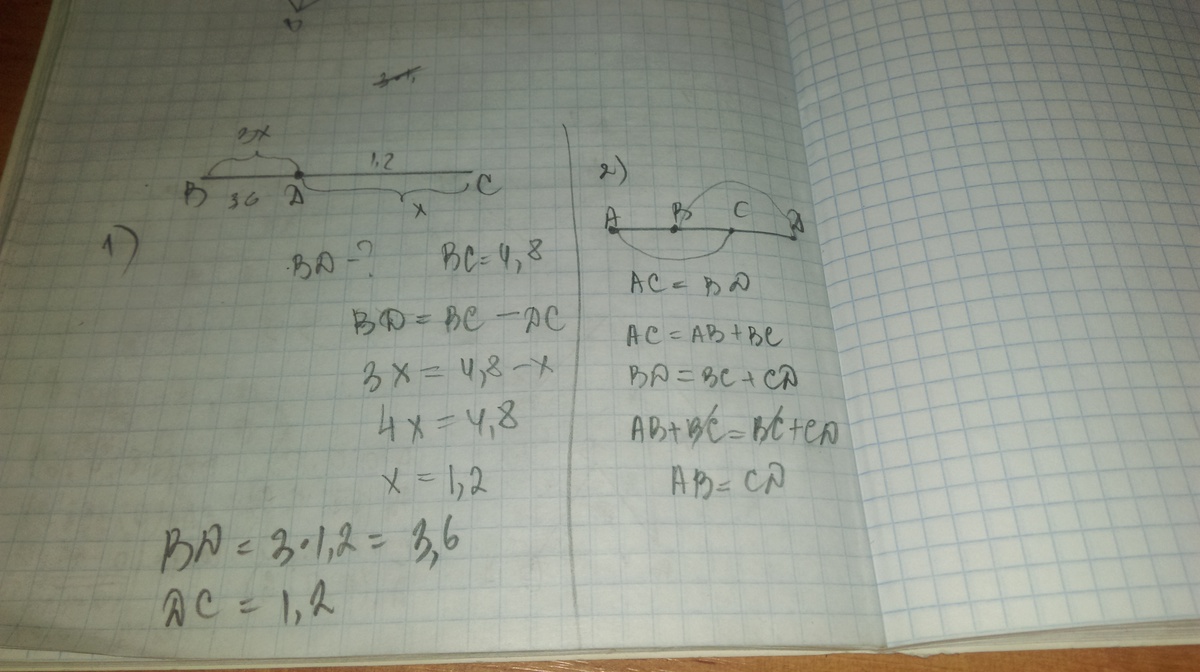 3x
1,2
B 36 D C
x
1)
BD - ? BC = 4,8
BD = BC - DC
3x = 4,8 - x
4x = 4,8
x = 1,2
BD = 3·1,2 = 3,6
DC = 1,2
2)
A B C D
AC = BD
AC = AB + BC
BD = BC + CD
AB + BC = BC + CD
AB = CD